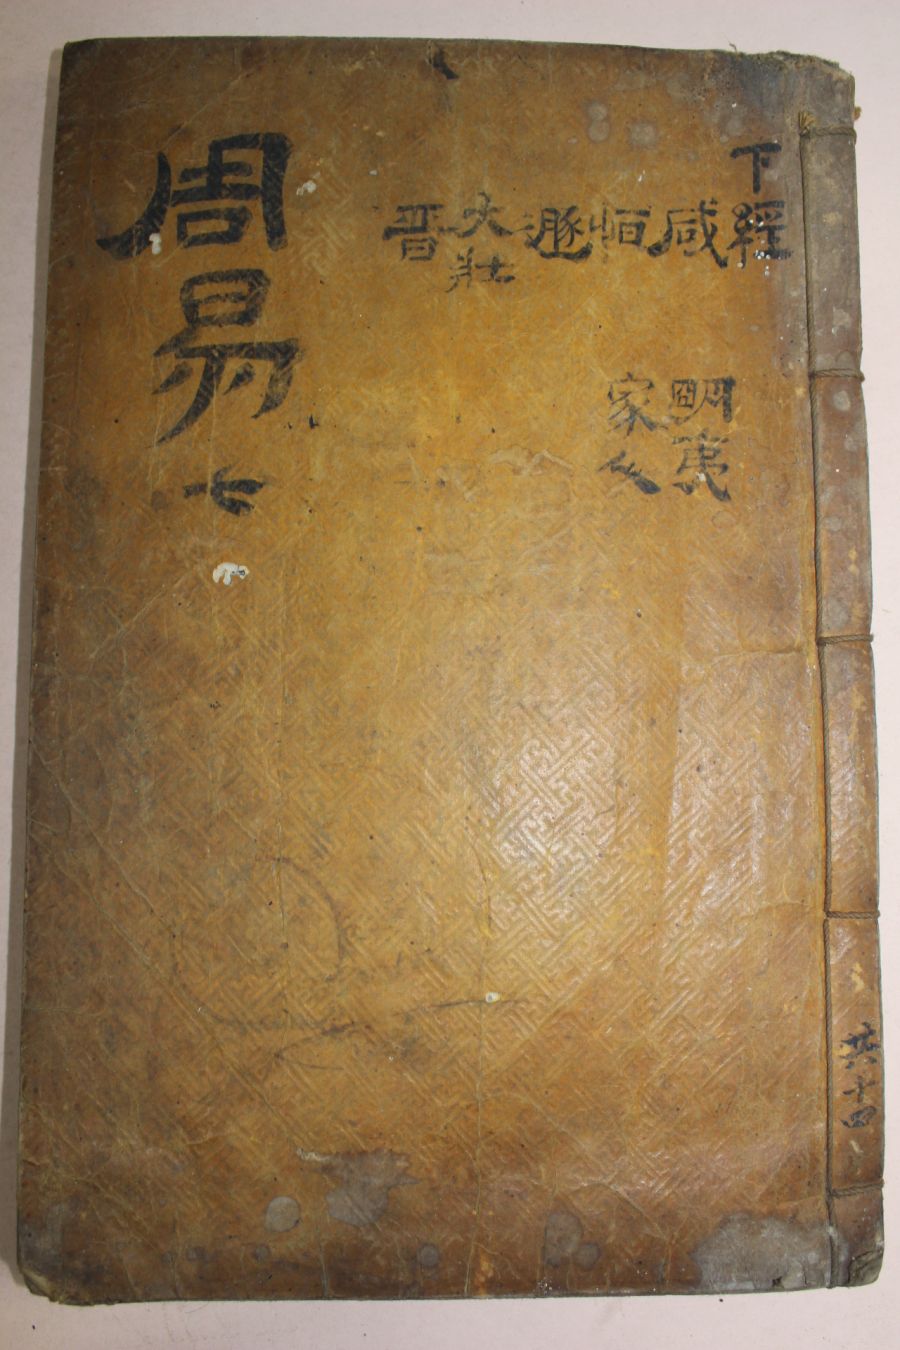 下經
咸
恒
遯
大壯
晉
明夷
家人
周易 七
共十四